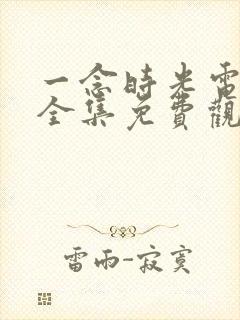 一念時光電
全集免費觀
雷雨-寂寞